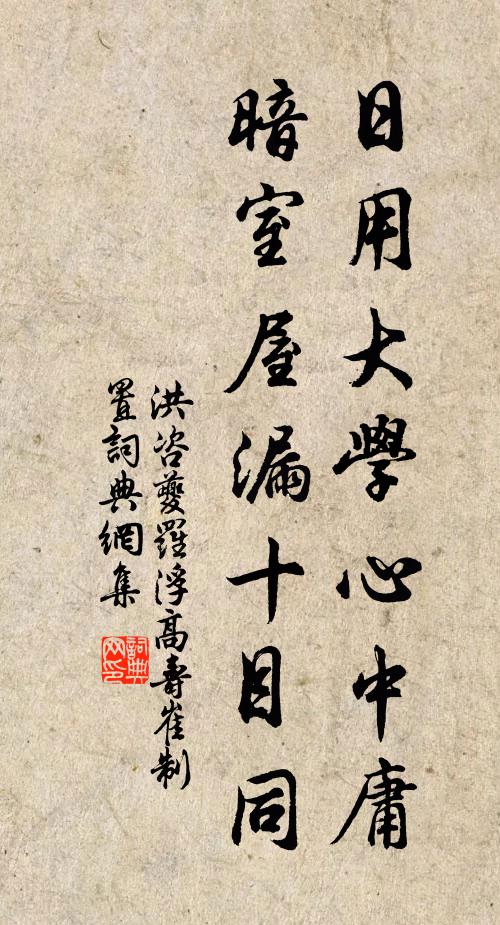 日用大學心中庸
暗室屋漏十目同
洪咨夔羅浮高壽崔制
置詞典網集
詞典网印